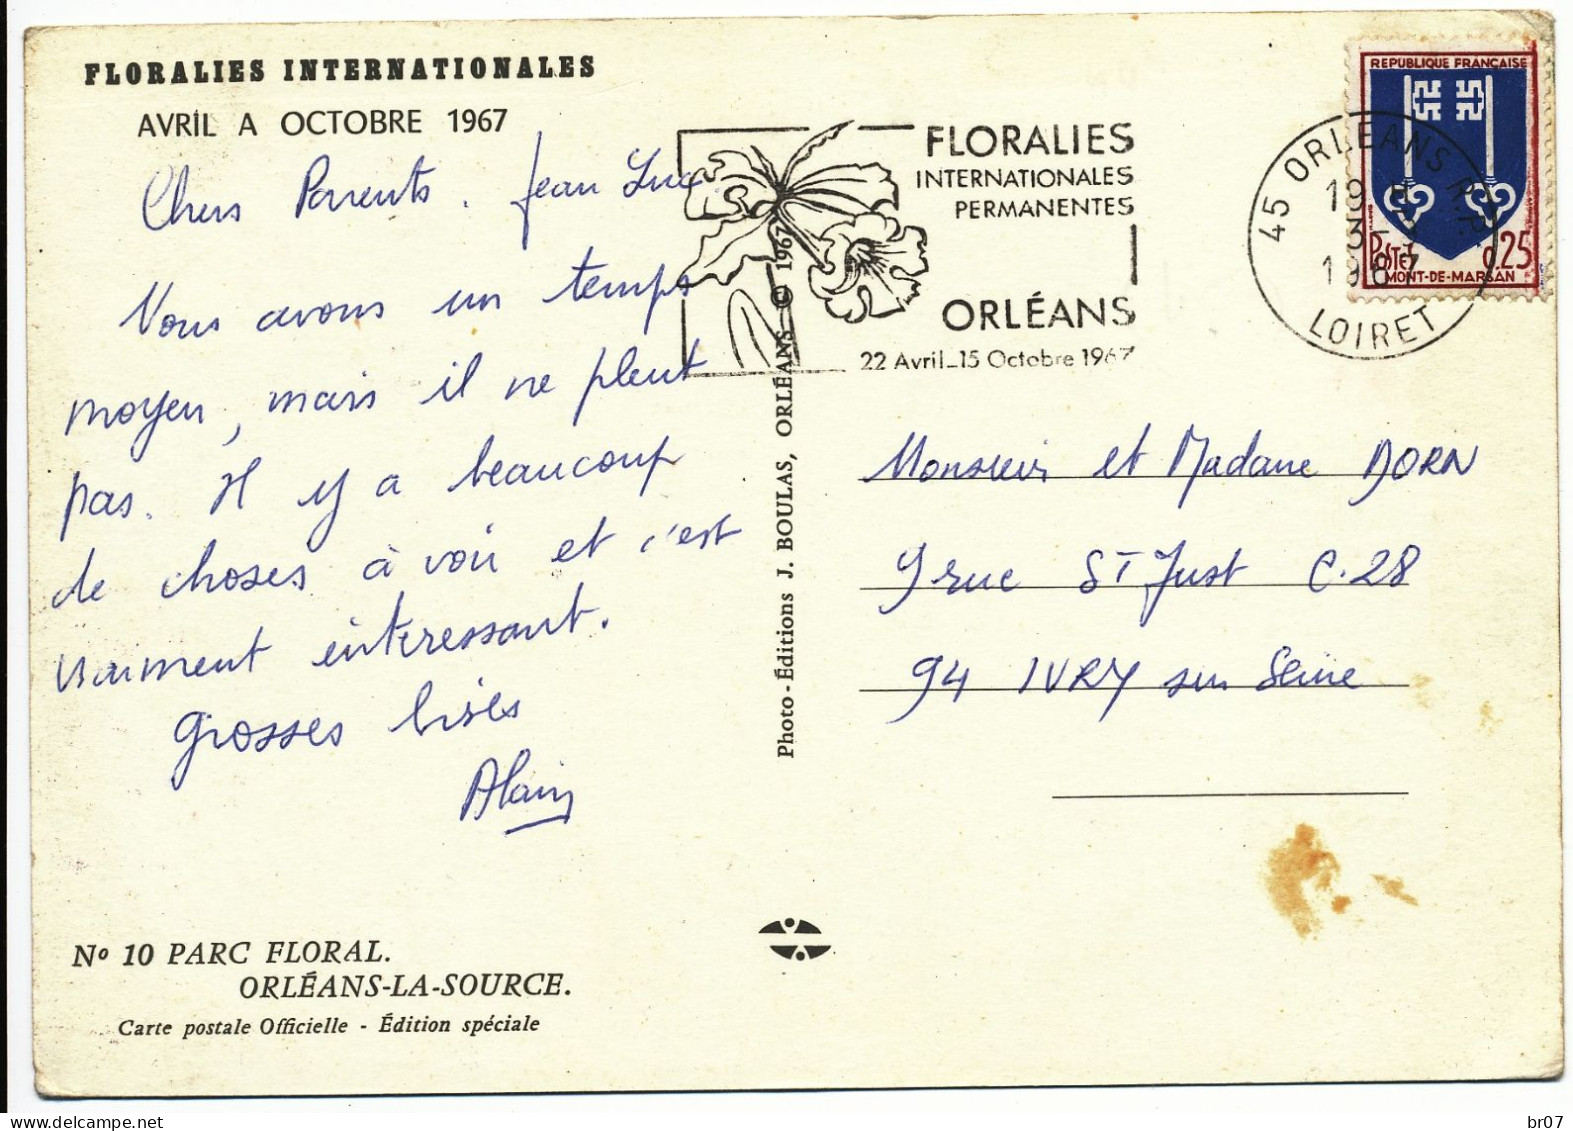 FLORALIES INTERNATIONALES
AVRIL A OCTOBRE 1967
Chers Parents. Jean Luc
Nous avons un temps
moyen, mais il ne pleut
pas. Il y a beaucoup
de choses à voir et c'est
vraiment intéressant.
grosses bises
Alain
No 10 PARC FLORAL.
ORLÉANS-LA-SOURCE.
Carte postale Officielle - Édition spéciale
Photo-Éditions J. BOULAS, ORLÉANS © 1967
FLORALIES
INTERNATIONALES
PERMANENTES
ORLÉANS
22 Avril_15 Octobre 1967
45 ORLEANS R.P.
19 H
3-
1967
LOIRET
REPUBLIQUE FRANCAISE
POSTES 0.25
MONT-DE-MARSAN
Monsieur et Madame DORN
9 rue ST Just C.28
94 IVRY sur Seine
delcampe.net
br07